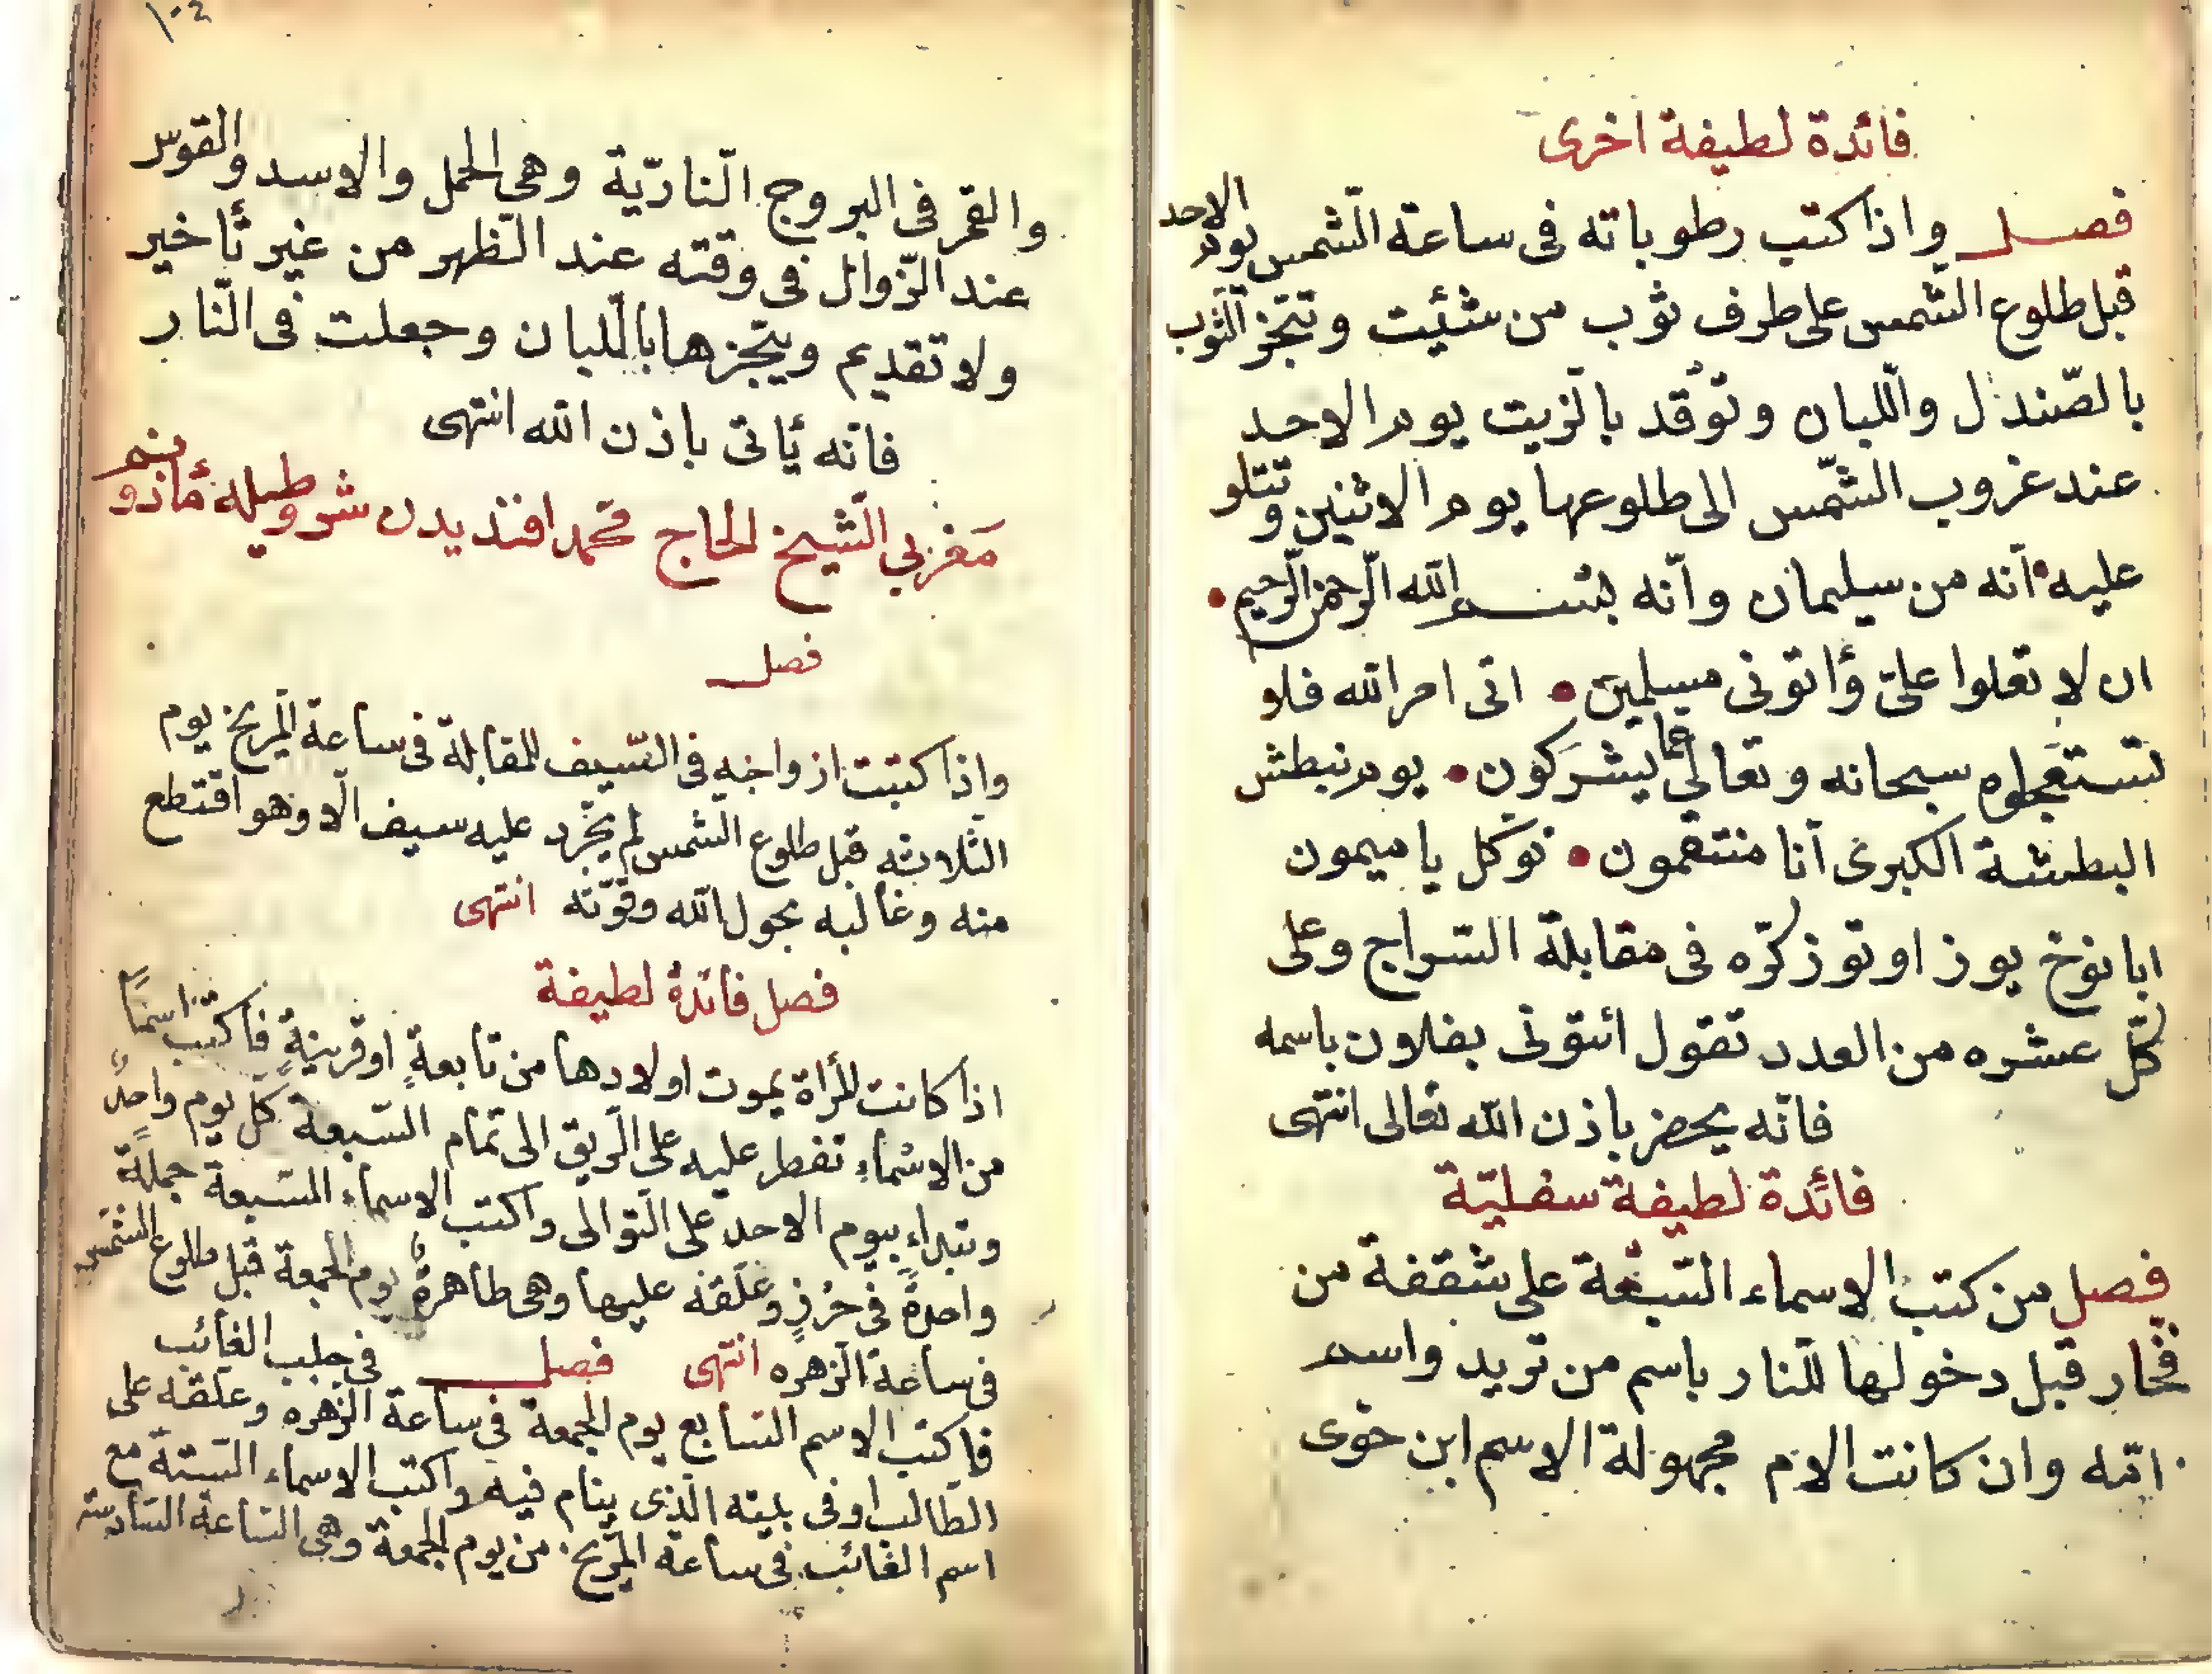 فائدة لطيفة اخرى
فصل واذا كتب رطوباته فى ساعة الشمس يوم الاحد
قبل طلوع الشمس على طرف ثوب من شئيت وتبخر الثوب
بالصندل واللبان وتوقد بالزيت يوم الاحد
عند غروب الشمس الى طلوعها يوم الاثنين وتتلو
عليه انه من سيلمان وانه بسم الله الرحمن الرحيم
ان لا تعلوا على وأتونى مسلمين اتى امر الله فلا
تستعجلوه سبحانه وتعالى عما يشركون يوم نبطش
البطشة الكبرى انا منتقمون توكل يا ميمون
ابا نوخ يوز او توز كره فى مقابلة السراج وعلى
كل عشره من العدد تقول ائتونى بفلان باسمه
فانه يحضر باذن الله تعالى انتهى
فائدة لطيفة سفلية
فصل من كتب الاسماء السبعة على شقفة من
فخار قبل دخولها للنار باسم من تريد واسم
امه وان كانت الام مجهولة الاسم ابن حوى
١٠٢
والقمر فى البروج النارية وهى الحمل والاسد والقوس
عند الزوال فى وقته عند الظهر من غير تأخير
ولا تقديم ويبخرها باللبان وجعلت فى النار
فانه يأتى باذن الله انتهى
مغربي الشيخ الحاج محمد افنديدن شو وطيله مأذونم
فصل
واذا كتبت ازواجه فى السيف للمقابلة فى ساعة المريخ يوم
الثلاثه قبل طلوع الشمس لم يجرد عليه سيف الا وهو اقتطع
منه وغالبه بحول الله وقوته انتهى
فصل فائدة لطيفة
اذا كانت المرأة يموت اولادها من تابعة او قرينة فاكتب اسما
من الاسماء تفطر عليه على الريق الى تمام السبعة كل يوم واحد
وتبداء بيوم الاحد على التوالى واكتب الاسماء السبعة جملة
واحدة فى حرز وعلقه عليها وهى طاهرة يوم الجمعة قبل طلوع الشمس
فى ساعة الزهره انتهى فصل فى جلب الغائب
فاكتب الاسم السابع يوم الجمعة فى ساعة الزهره وعلقه على
الطالب او فى بيته الذى ينام فيه واكتب الاسماء الستة مع
اسم الغائب فى ساعة المريخ من يوم الجمعة وهى الساعة السادسة